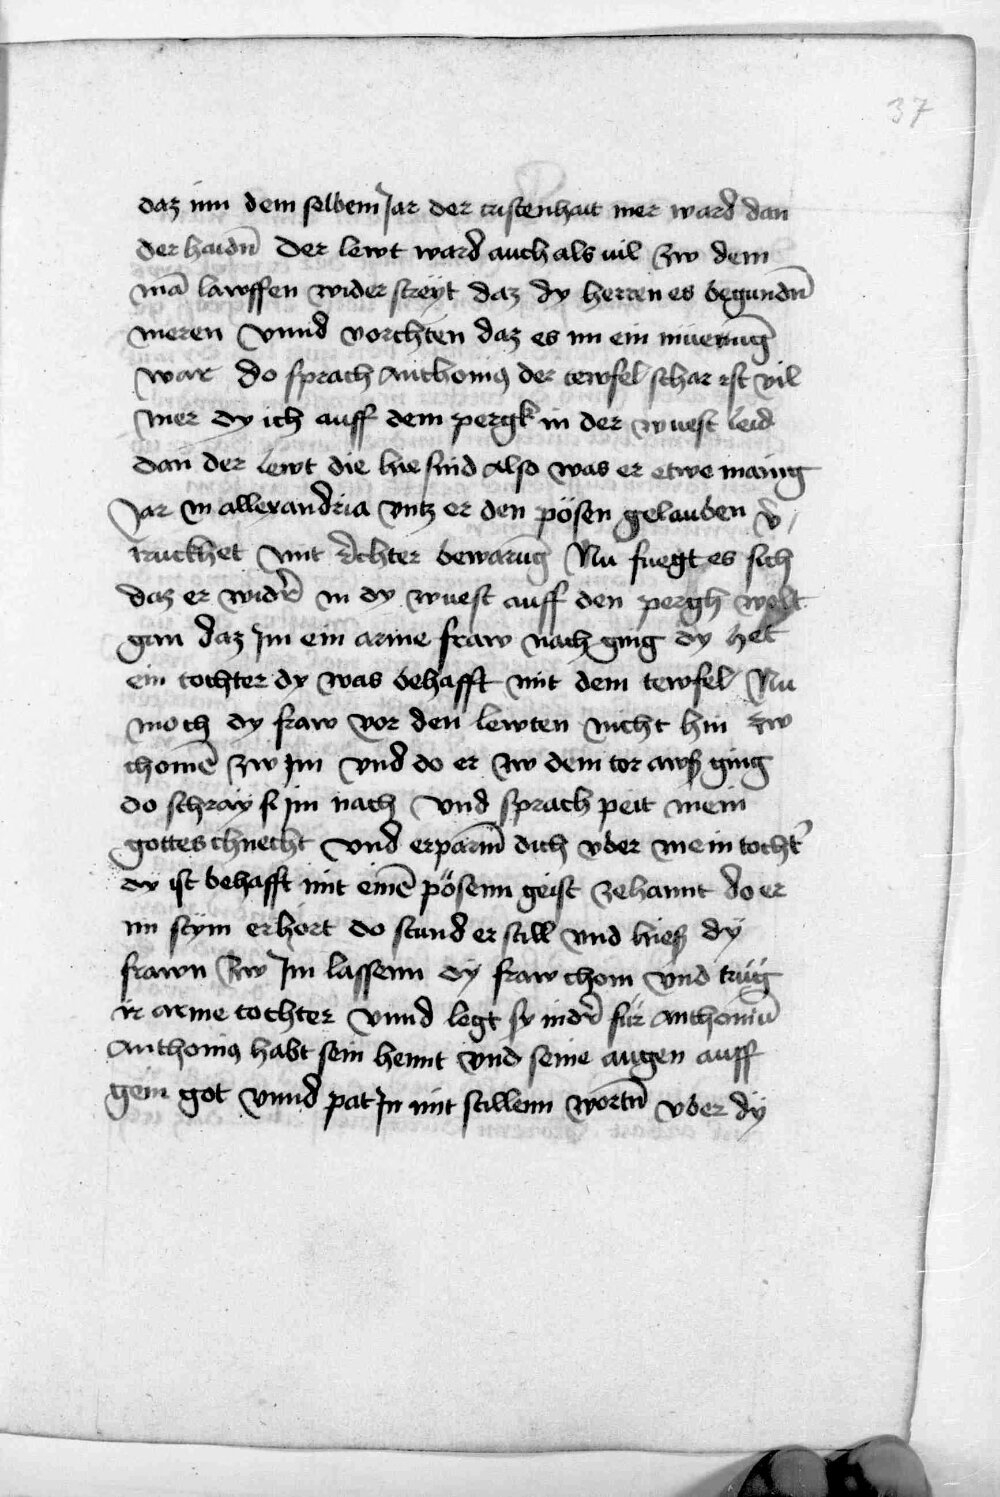 37
daz inn dem selbem Jar der cristenhait mer ward dan
der haidn̄ Der lewt ward auch als uil zw dem
mā lawffen wider streÿt daz dy herren es begundn̄
meren Vnnd vorchten daz es im ein
war do sprach Anthonius der tewfel schar ist vil
mer dy ich auff dem pergk in der wuest leid
dan der lewt die hie sind Also was er etwe manig
Jar in allexandria vntz er den pösen gelauben v̄
truckhet mit rechter bewarūg Nu fuegt es sich
daz er widr̄ in dy wuest auff den pergh wolt
gan daz Im ein arme fraw nach ging dy het
ein tochter dy was behafft mit dem tewfel Nu
moch dy fraw vor den lewten nicht hin zw
chomē zw im vnd do er zw dem tor awß ging
do schray si im nach vnd sprach peit mein
gottes chnecht vnd erparm̄ dich vber mein tocht̄
dy ist behafft mit einē pösenn geist zehannt do er
im stym erhört do stund er still vnd hieß dÿ
frawn zw Im lassenn dÿ fraw chom vnd trüg
ir arme tochter vnnd legt sy nidr̄ für Anthoniū
Anthonius habt sein hennt vnd seine augen auff
gein got vnnd pat In mit stillenn wortn̄ vber dÿ